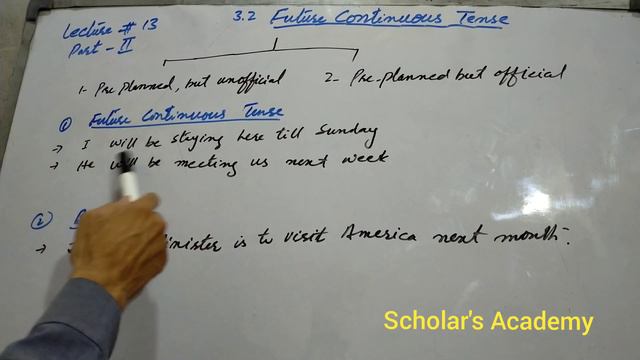 Lecture # 13
Part - II
3.2 Future Continuous Tense
1- Pre planned, but unofficial
2- Pre-planned but official
① Future Continuous Tense
→ I will be staying here till Sunday
→ He will be meeting us next week
②
→ inister is to visit America next month.
Scholar's Academy